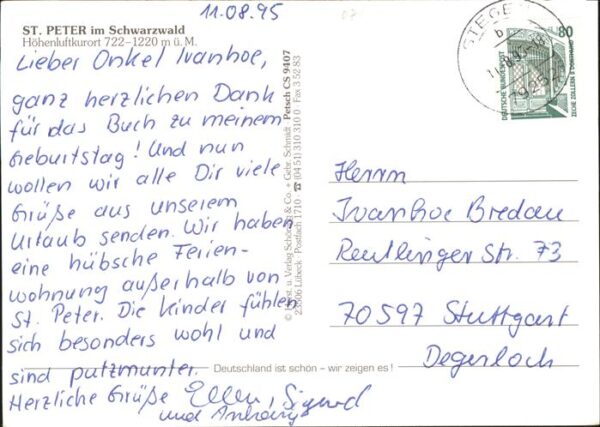 11.08.95
ST. PETER im Schwarzwald
Höhenluftkurort 722–1220 m ü. M.
Lieber Onkel Ivanhoe,
ganz herzlichen Dank
für das Buch zu meinem
Geburtstag! Und nun
wollen wir alle Dir viele
Grüße aus unserem
Urlaub senden. Wir haben
eine hübsche Ferien-
wohnung außerhalb von
St. Peter. Die Kinder fühlen
sich besonders wohl und
sind putzmunter.
Herzliche Grüße Ellen, Sigurd
und Anthony
Deutschland ist schön – wir zeigen es!
Petsch CS 9407
23506 Lübeck · Postfach 1710 · ☎ (0451) 310 310 0 · Fax 3 52 83
STEGE
b
80
DEUTSCHE BUNDESPOST
ZECHE ZOLLERN II DORTMUND
Herrn
Ivanhoe Bredau
Reutlinger Str. 73
70597 Stuttgart
Degerloch